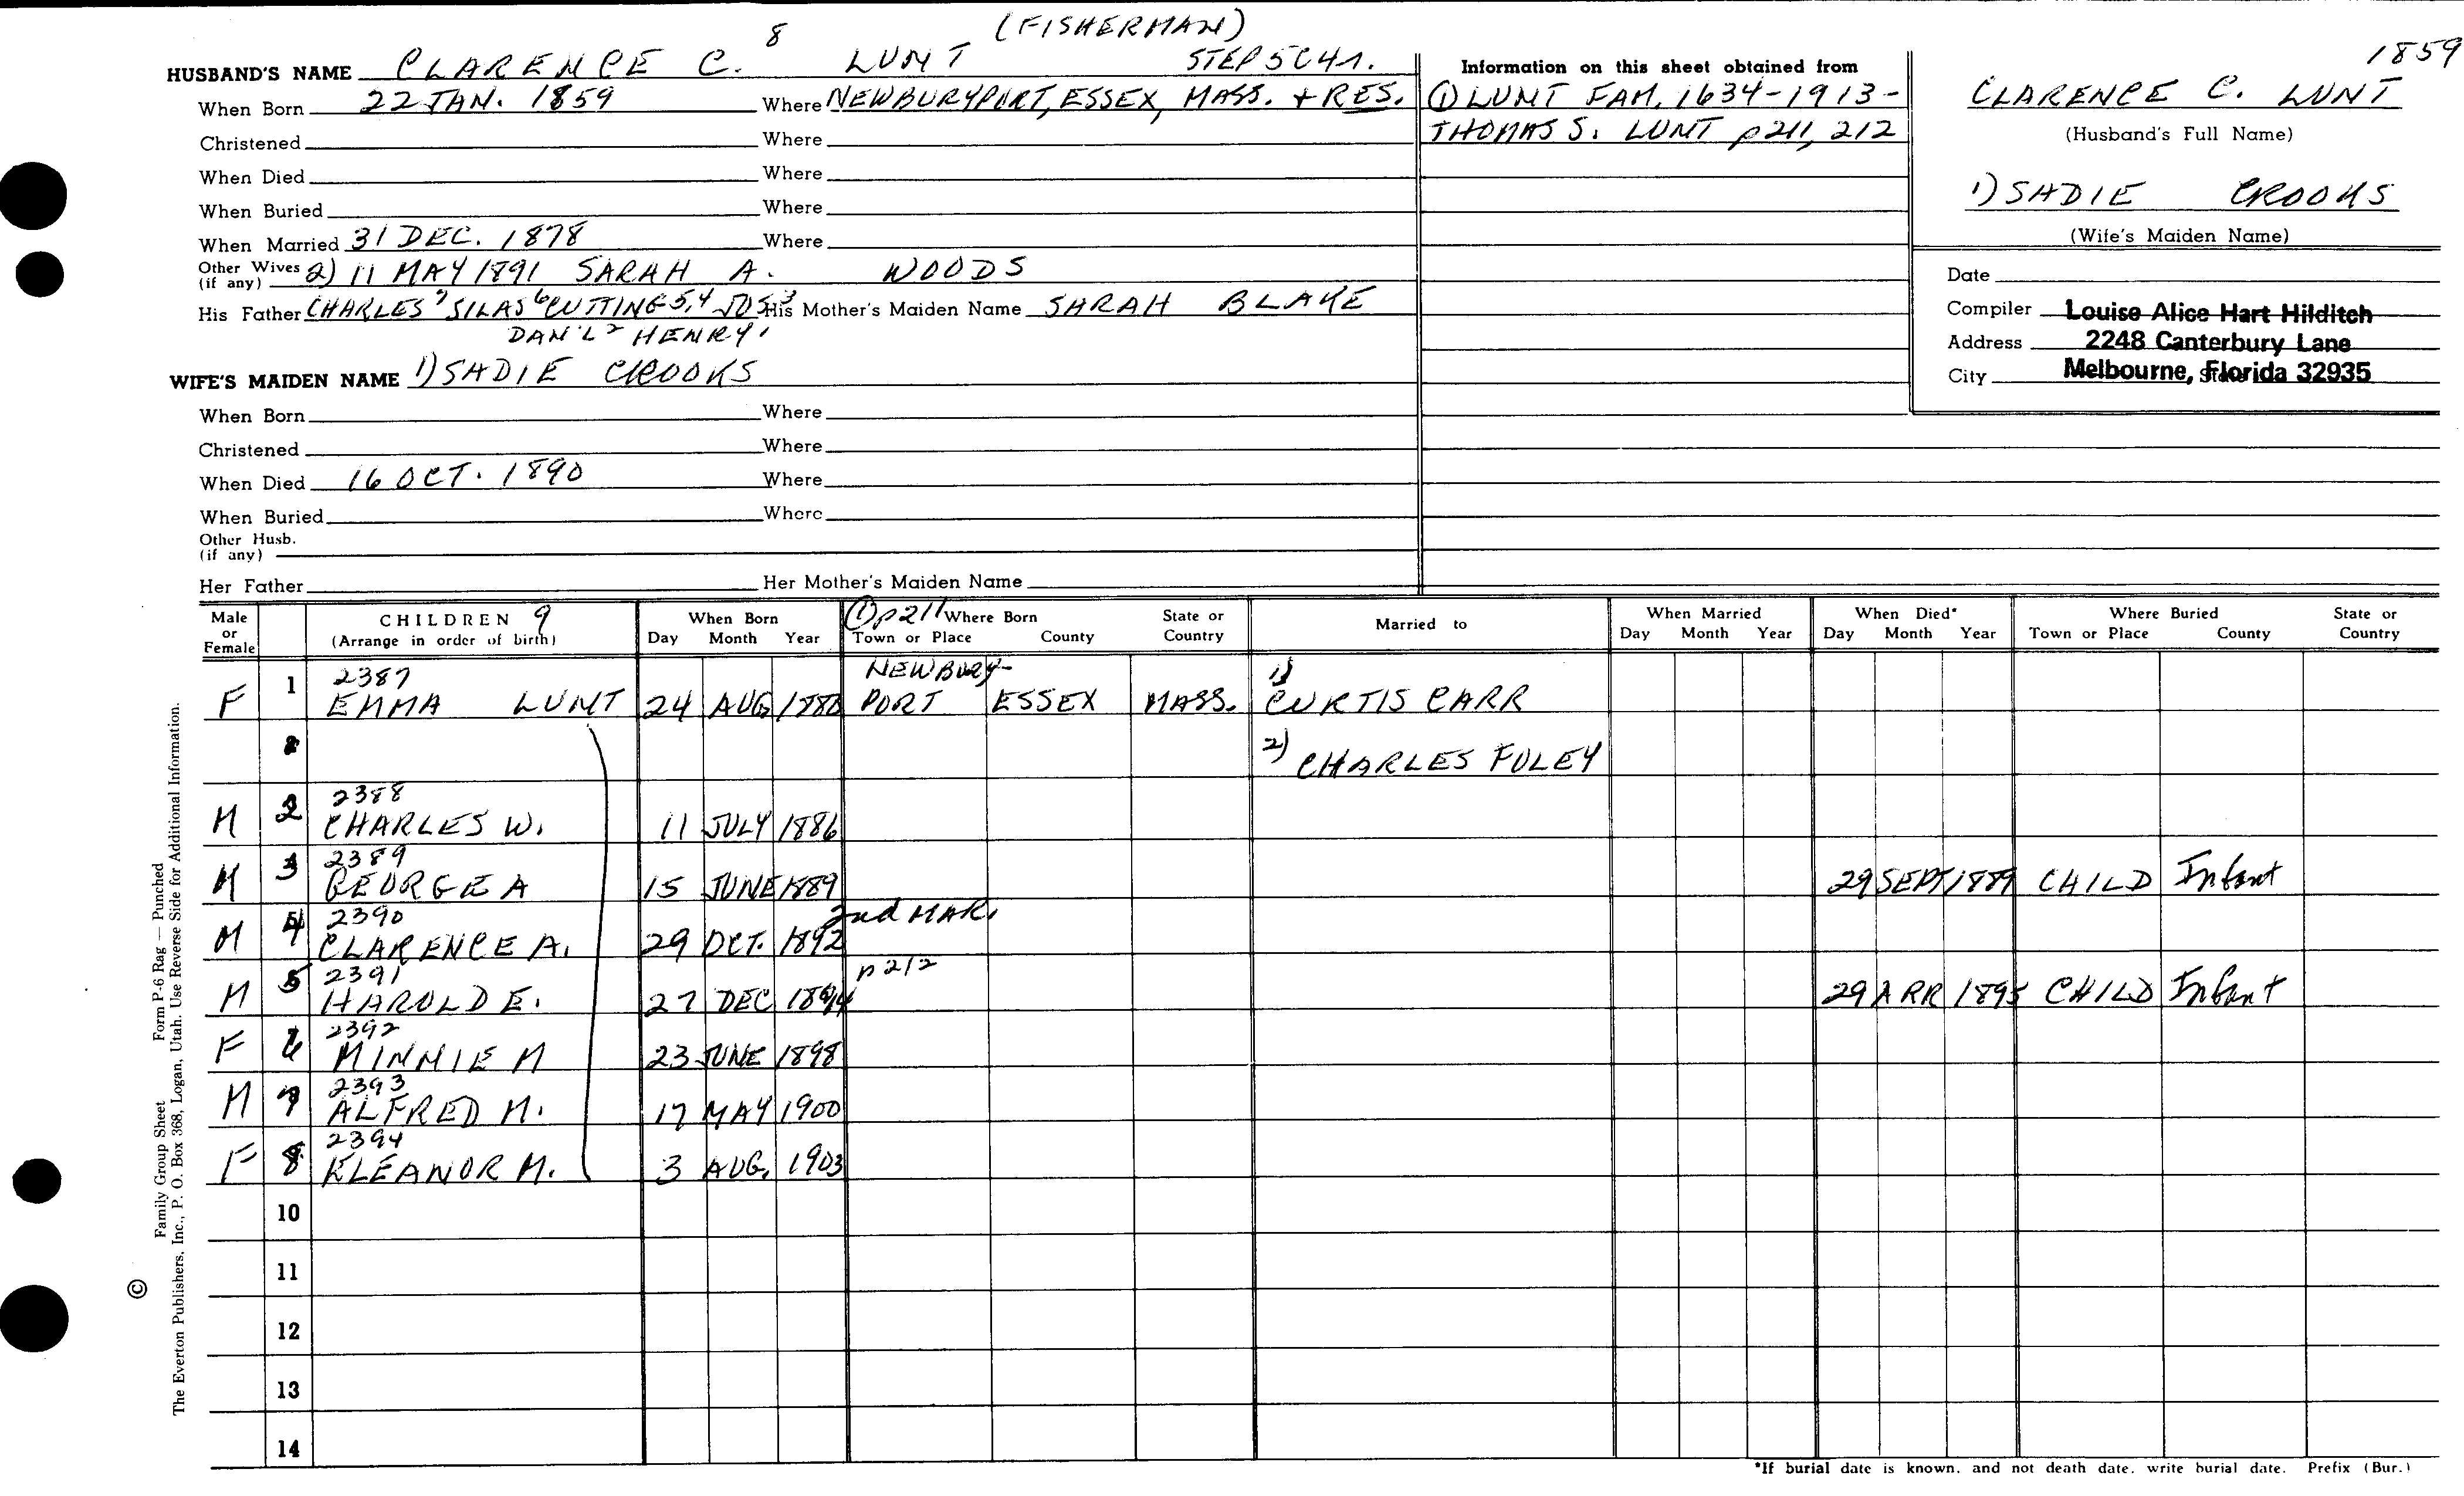 8 (FISHERMAN)
HUSBAND'S NAME CLARENCE C. LUNT STEP 5C41.
When Born 22 JAN. 1859 Where NEWBURYPORT, ESSEX, MASS. + RES.
Christened Where
When Died Where
When Buried Where
When Married 31 DEC. 1878 Where
Other Wives (if any) 2) 11 MAY 1891 SARAH A. WOODS
His Father CHARLES 7 SILAS 6 CUTTING 5,4 JOS 3 His Mother's Maiden Name SARAH BLAKE
DAN'L 2 HENRY 1
WIFE'S MAIDEN NAME 1) SADIE CROOKS
When Born Where
Christened Where
When Died 16 OCT. 1890 Where
When Buried Where
Other Husb. (if any)
Her Father Her Mother's Maiden Name
Information on this sheet obtained from
① LUNT FAM. 1634-1913-
THOMAS S. LUNT p211, 212
1859
CLARENCE C. LUNT
(Husband's Full Name)
1) SADIE CROOKS
(Wife's Maiden Name)
Date
Compiler Louise Alice Hart Hilditch
Address 2248 Canterbury Lane
City Melbourne, Florida 32935
Male or Female CHILDREN 9 (Arrange in order of birth) When Born Day Month Year ① p211 Where Born Town or Place County State or Country Married to When Married Day Month Year When Died* Day Month Year Where Buried Town or Place County State or Country
2387 NEWBURY- 1)
F 1 EMMA LUNT 24 AUG 1880 PORT ESSEX MASS. CURTIS CARR
2) CHARLES FOLEY
2388
M 2 CHARLES W. 11 JULY 1886
2389
M 3 GEORGE A 15 JUNE 1889 29 SEPT 1889 CHILD Infant
2390 2nd MAR.
M 4 CLARENCE A. 29 OCT. 1892
2391 p212
M 5 HAROLD E. 27 DEC 1894 29 APR 1895 CHILD Infant
2392
F 6 MINNIE M 23 JUNE 1898
2393
M 7 ALFRED M. 17 MAY 1900
2394
F 8 ELEANOR M. 3 AUG. 1903
10
11
12
13
14
*If burial date is known, and not death date, write burial date. Prefix (Bur.)
© Family Group Sheet Form P-6 Rag — Punched
The Everton Publishers, Inc., P. O. Box 368, Logan, Utah. Use Reverse Side for Additional Information.